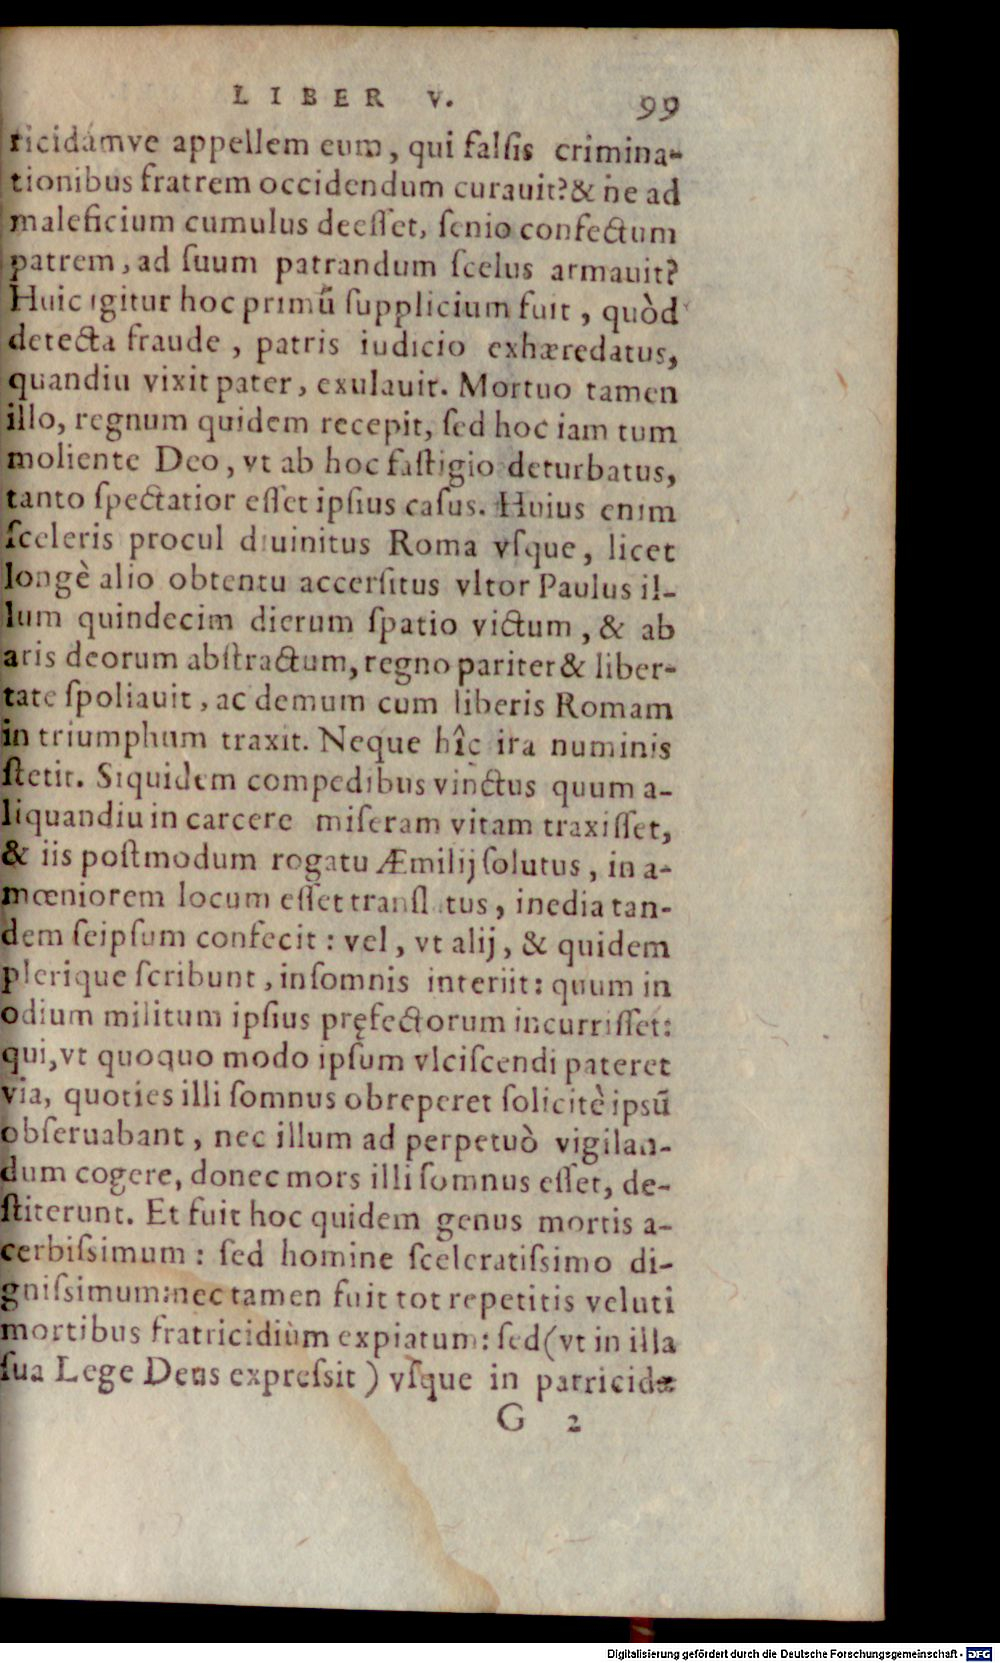 LIBER V. 99
ricidámve appellem eum, qui falsis crimina-
tionibus fratrem occidendum curauit?& ne ad
maleficium cumulus deeſſet, ſenio confectum
patrem, ad ſuum patrandum ſcelus armauit?
Huic igitur hoc primũ ſupplicium fuit, quòd
detecta fraude, patris iudicio exhæredatus,
quandiu vixit pater, exulauit. Mortuo tamen
illo, regnum quidem recepit, ſed hoc iam tum
moliente Deo, vt ab hoc faſtigio deturbatus,
tanto ſpectatior eſſet ipſius caſus. Huius enim
ſceleris procul diuinitus Roma vſque, licet
longè alio obtentu accerſitus vltor Paulus il-
lum quindecim dierum ſpatio victum, & ab
aris deorum abſtractum, regno pariter & liber-
tate ſpoliauit, ac demum cum liberis Romam
in triumphum traxit. Neque hîc ira numinis
ſtetit. Siquidem compedibus vinctus quum a-
liquandiu in carcere miſeram vitam traxiſſet,
& iis poſtmodum rogatu Æmilij ſolutus, in a-
mœniorem locum eſſet tranſlatus, inedia tan-
dem ſeipſum confecit: vel, vt alij, & quidem
plerique ſcribunt, inſomnis interiit: quum in
odium militum ipſius pręfectorum incurriſſet:
qui, vt quoquo modo ipſum vlciſcendi pateret
via, quoties illi ſomnus obreperet ſolicitè ipsũ
obſeruabant, nec illum ad perpetuò vigilan-
dum cogere, donec mors illi ſomnus eſſet, de-
ſtiterunt. Et fuit hoc quidem genus mortis a-
cerbiſsimum: ſed homine ſceleratiſsimo di-
gniſsimum: nec tamen fuit tot repetitis veluti
mortibus fratricidium expiatum: ſed (vt in illa
ſua Lege Deus expreſsit) vſque in patricidæ
G 2
Digitalisierung gefördert durch die Deutsche Forschungsgemeinschaft - DFG